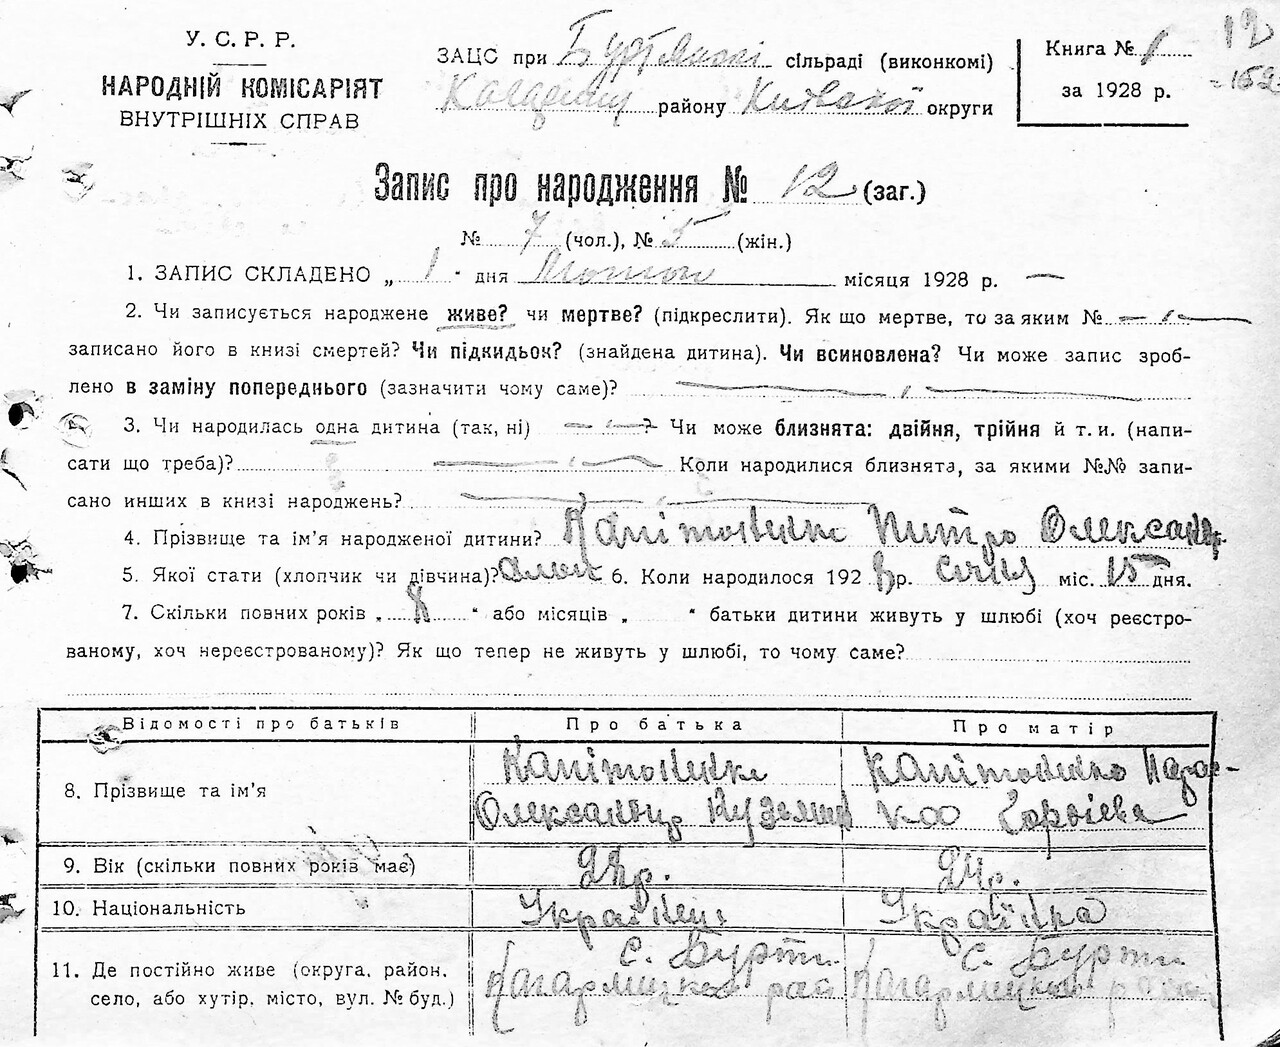 У. С. Р. Р.
НАРОДНІЙ КОМІСАРІЯТ
ВНУТРІШНІХ СПРАВ
ЗАЦС при сільраді (виконкомі)
району Київської округи
Книга № 1
за 1928 р.
12
Запис про народження № 12 (заг.)
№ 7 (чол.), № 5 (жін.)
1. ЗАПИС СКЛАДЕНО „ 1 " дня місяця 1928 р. —
2. Чи записується народжене живе? чи мертве? (підкреслити). Як що мертве, то за яким №
записано його в книзі смертей? Чи підкидьок? (знайдена дитина). Чи всиновлена? Чи може запис зроб-
лено в заміну попереднього (зазначити чому саме)?
3. Чи народилась одна дитина (так, ні) Чи може близнята: двійня, трійня й т. и. (напи-
сати що треба)? Коли народилися близнята, за якими №№ запи-
сано инших в книзі народжень?
4. Прізвище та ім'я народженої дитини? Петро
5. Якої стати (хлопчик чи дівчина)? 6. Коли народилося 192 8 р. січня міс. 15 дня.
7. Скільки повних років „ 8 " або місяців „ " батьки дитини живуть у шлюбі (хоч реєстро-
ваному, хоч нереєстрованому)? Як що тепер не живуть у шлюбі, то чому саме?
Відомості про батьків Про батька Про матір
8. Прізвище та ім'я
9. Вік (скільки повних років має) 24р.
10. Національність Українец Українка
11. Де постійно живе (округа, район, с. Бурти с. Бурти
село, або хутір, місто, вул. № буд.)